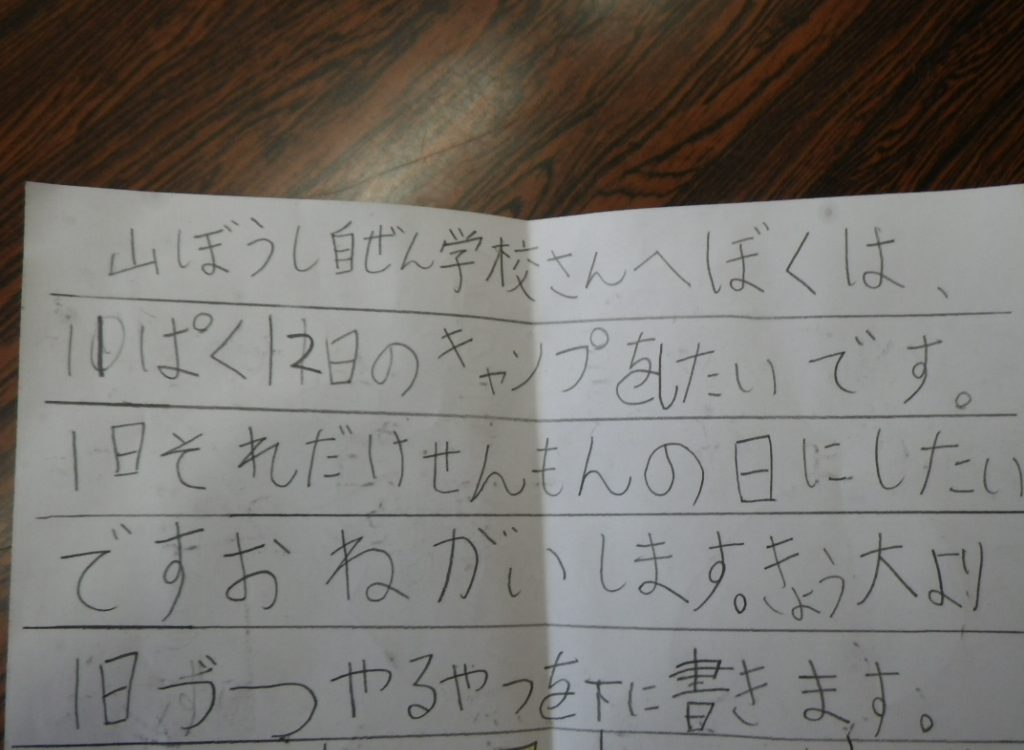 山ぼうし自ぜん学校さんへぼくは、
10ぱく12日のキャンプをしたいです。
1日それだけせんもんの日にしたい
ですおねがいします。きょう大より
1日づつやるやつを下に書きます。